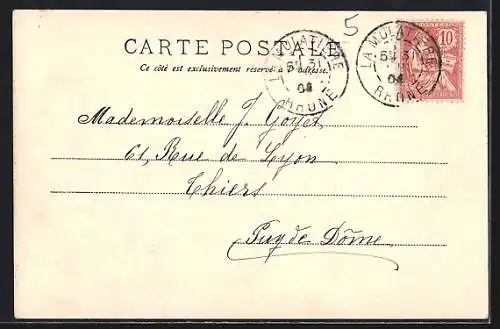 5
CARTE POSTALE
Ce côté est exclusivement réservé à l'adresse.
LA MULATIERE
5E 31
04
RHONE
LA MULATIERE
5E 31
04
RHONE
10
Mademoiselle J. Goyet
61, Rue de Lyon
Thiers
Puy de Dôme